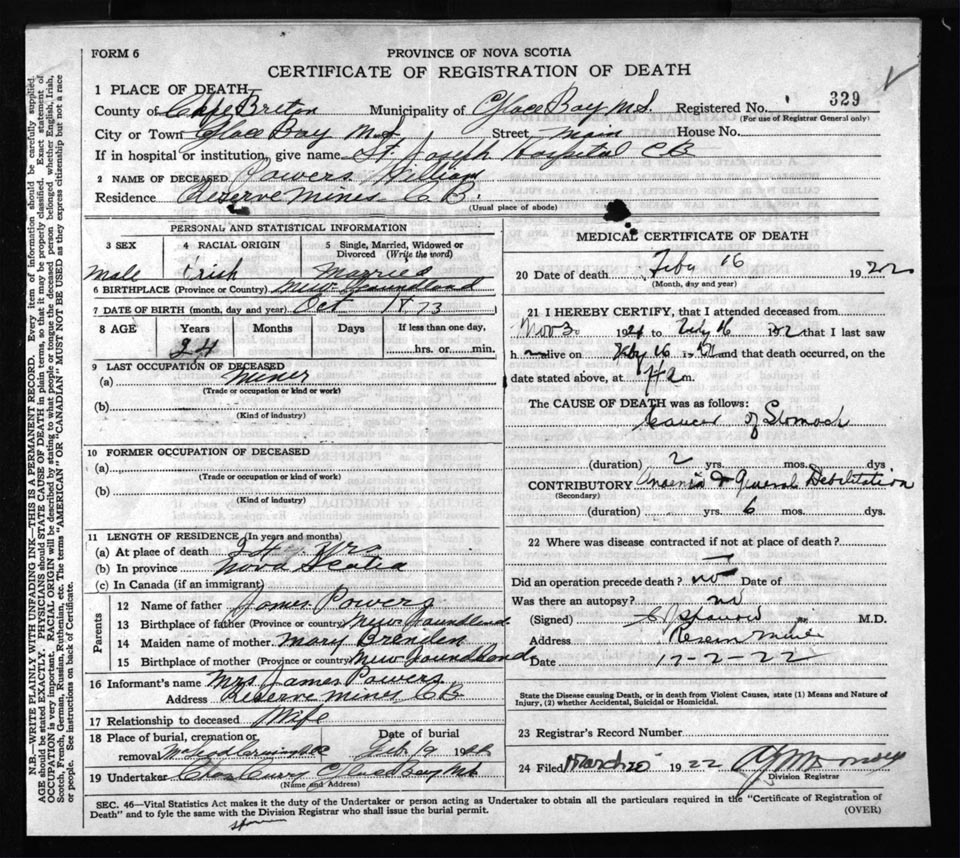 FORM 6
PROVINCE OF NOVA SCOTIA
CERTIFICATE OF REGISTRATION OF DEATH
1 PLACE OF DEATH
County of Cape Breton Municipality of Glace Bay N.S. Registered No. 329
(For use of Registrar General only)
City or Town Glace Bay N.S Street Main House No.
If in hospital or institution, give name St. Joseph Hospital C B
2 NAME OF DECEASED Powers William
Residence Reserve Mines C B.
(Usual place of abode)
PERSONAL AND STATISTICAL INFORMATION
3 SEX
4 RACIAL ORIGIN
5 Single, Married, Widowed or Divorced (Write the word)
Male Irish Married
6 BIRTHPLACE (Province or Country) New Foundland
7 DATE OF BIRTH (month, day and year) Oct 1873
8 AGE Years Months Days If less than one day,
hrs. or min.
9 LAST OCCUPATION OF DECEASED
(a) Miner
(Trade or occupation or kind or work)
(b)
(Kind of industry)
10 FORMER OCCUPATION OF DECEASED
(a)
(Trade or occupation or kind of work)
(b)
(Kind of industry)
11 LENGTH OF RESIDENCE (In years and months)
(a) At place of death 24 Yrs
(b) In province Nova Scotia
(c) In Canada (if an immigrant)
Parents
12 Name of father James Powers
13 Birthplace of father (Province or country) New Foundland
14 Maiden name of mother Mary Brenden
15 Birthplace of mother (Province or country) New Foundland
16 Informant's name Mrs James Powers
Address Reserve Mines C B
17 Relationship to deceased Wife
18 Place of burial, cremation or removal
Date of burial Feb 19 1922
19 Undertaker Chas Curry Glace Bay N.S.
(Name and Address)
MEDICAL CERTIFICATE OF DEATH
20 Date of death Feby 16 1922
(Month, day and year)
21 I HEREBY CERTIFY, that I attended deceased from
Nov 3 192 to Feby 16 1922 that I last saw
h alive on Feby 16 19 and that death occurred, on the
date stated above, at m.
The CAUSE OF DEATH was as follows:
Cancer of Stomach
(duration) 2 yrs. mos. dys
CONTRIBUTORY Anaemia & General Debilitation
(Secondary)
(duration) yrs. 6 mos. dys.
22 Where was disease contracted if not at place of death?
Did an operation precede death? no Date of
Was there an autopsy? no
(Signed) M.D.
Address Reserve Mines
Date 17-2-22
State the Disease causing Death, or in death from Violent Causes, state (1) Means and Nature of
Injury, (2) whether Accidental, Suicidal or Homicidal.
23 Registrar's Record Number
24 Filed March 20 1922
Division Registrar
SEC. 46—Vital Statistics Act makes it the duty of the Undertaker or person acting as Undertaker to obtain all the particulars required in the "Certificate of Registration of
Death" and to fyle the same with the Division Registrar who shall issue the burial permit.
(OVER)
N.B.—WRITE PLAINLY WITH UNFADING INK—THIS IS A PERMANENT RECORD. Every item of information should be carefully supplied.
AGE should be stated EXACTLY. PHYSICIANS should STATE CAUSE OF DEATH in plain terms, so that it may be properly classified. Exact statement of
OCCUPATION is very important. RACIAL ORIGIN will be described by stating to what people or tongue the deceased person belonged whether English, Irish,
Scotch, French, German, Russian, Ruthenian, etc. The terms "AMERICAN" OR "CANADIAN" MUST NOT BE USED as they express citizenship but not a race
or people. See instructions on back of Certificate.